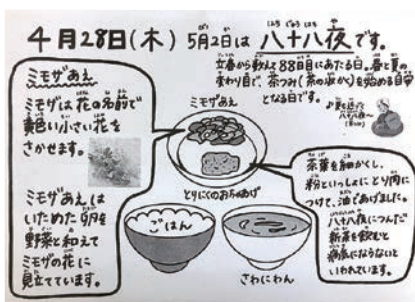 4月28日(木) 5月2日は 八十八夜です。
立春から数えて88日目にあたる日。春と夏の
変わり目で、茶つみ(茶の収かく)を始める目安
となる日です。
ミモザあえ
ミモザは花の名前で
黄色い小さい花を
さかせます。
ミモザあえは
いためた卵を
野菜と和えて
ミモザの花に
見立てています。
ミモザあえ
とりにくのおちゃあげ
ごはん
さわにわん
♪夏も近づく
八十八夜〜
茶葉を細かくし、
粉といっしょにとり肉に
つけて、油であげました。
八十八夜につんだ
新茶を飲むと
病気にならないと
いわれています。